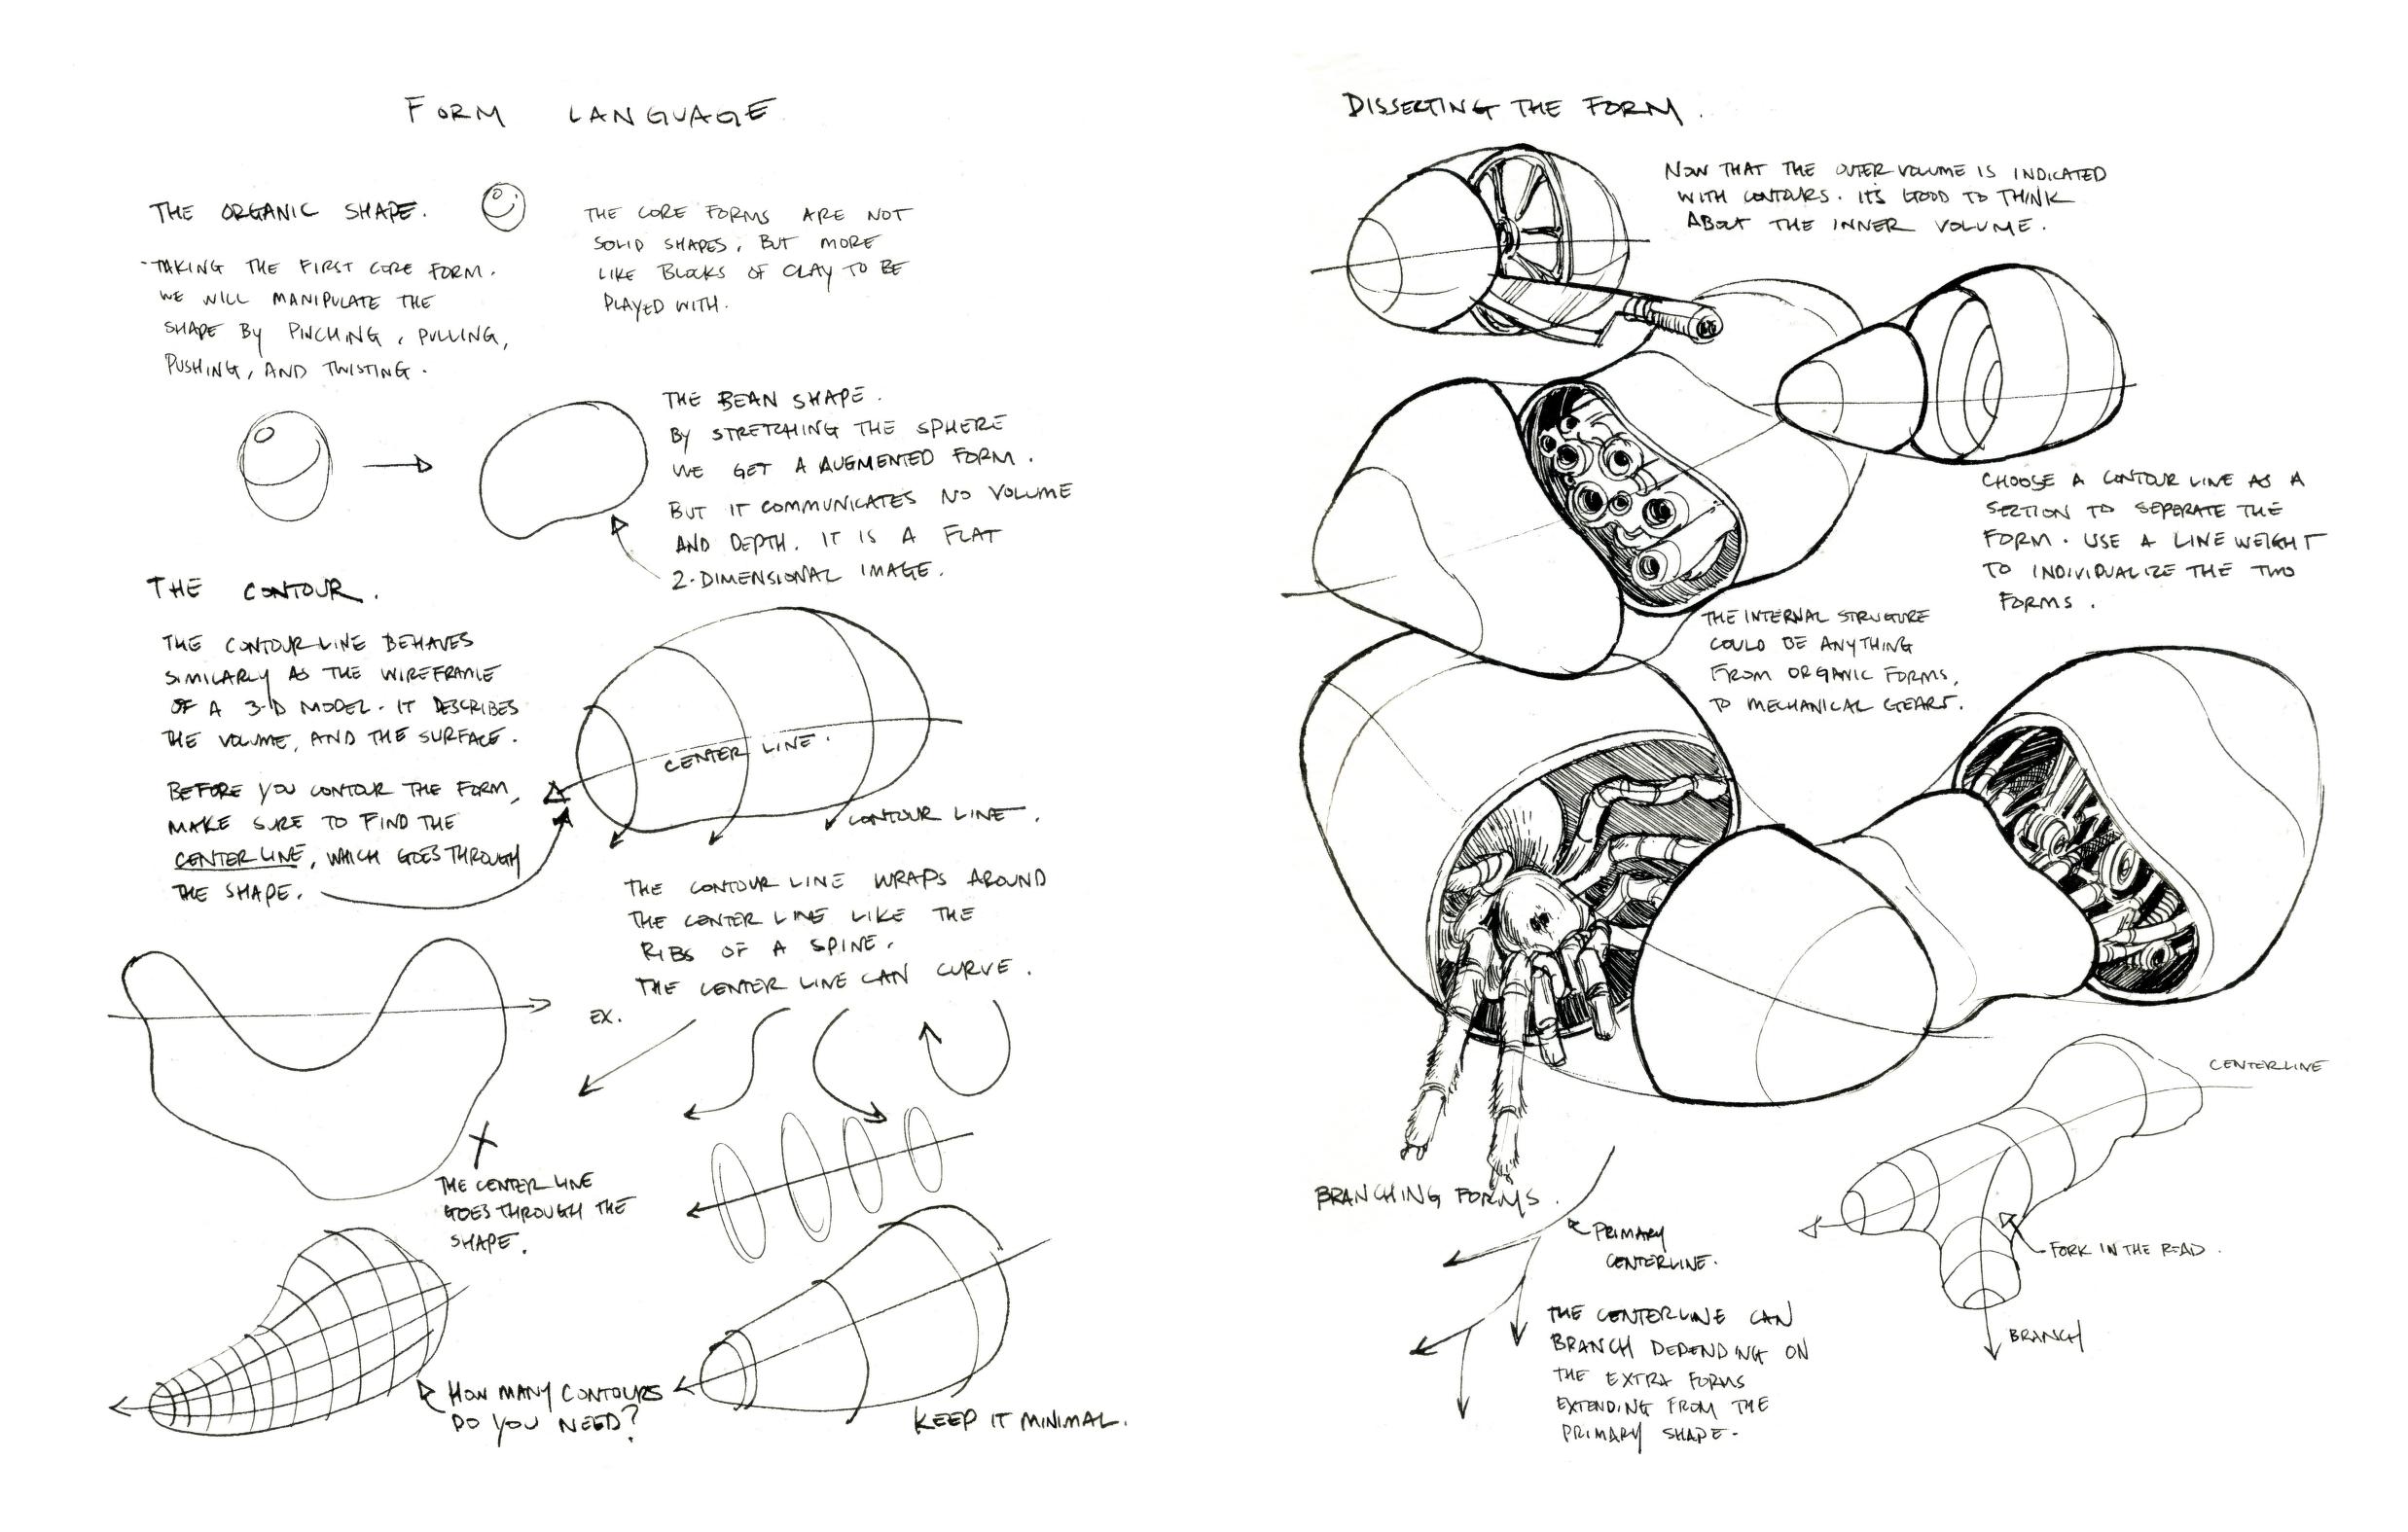 FORM LANGUAGE
THE ORGANIC SHAPE.
-TAKING THE FIRST CORE FORM.
WE WILL MANIPULATE THE
SHAPE BY PINCHING, PULLING,
PUSHING, AND TWISTING.
THE CORE FORMS ARE NOT
SOLID SHAPES, BUT MORE
LIKE BLOCKS OF CLAY TO BE
PLAYED WITH.
THE BEAN SHAPE.
BY STRETCHING THE SPHERE
WE GET A AUGMENTED FORM.
BUT IT COMMUNICATES NO VOLUME
AND DEPTH. IT IS A FLAT
2-DIMENSIONAL IMAGE.
THE CONTOUR.
THE CONTOUR LINE BEHAVES
SIMILARLY AS THE WIREFRAME
OF A 3-D MODEL. IT DESCRIBES
THE VOLUME, AND THE SURFACE.
BEFORE YOU CONTOUR THE FORM,
MAKE SURE TO FIND THE
CENTER LINE, WHICH GOES THROUGH
THE SHAPE.
CENTER LINE.
CONTOUR LINE.
THE CONTOUR LINE WRAPS AROUND
THE CENTER LINE LIKE THE
RIBS OF A SPINE.
THE CENTER LINE CAN CURVE.
EX.
THE CENTER LINE
GOES THROUGH THE
SHAPE.
HOW MANY CONTOURS
DO YOU NEED?
KEEP IT MINIMAL.
DISSECTING THE FORM.
NOW THAT THE OUTER VOLUME IS INDICATED
WITH CONTOURS. IT'S GOOD TO THINK
ABOUT THE INNER VOLUME.
CHOOSE A CONTOUR LINE AS A
SECTION TO SEPERATE THE
FORM. USE A LINE WEIGHT
TO INDIVIDUALIZE THE TWO
FORMS.
THE INTERNAL STRUCTURE
COULD BE ANYTHING
FROM ORGANIC FORMS,
TO MECHANICAL GEARS.
BRANCHING FORMS.
PRIMARY
CENTERLINE.
THE CENTERLINE CAN
BRANCH DEPENDING ON
THE EXTRA FORMS
EXTENDING FROM THE
PRIMARY SHAPE.
CENTERLINE
FORK IN THE ROAD.
BRANCH